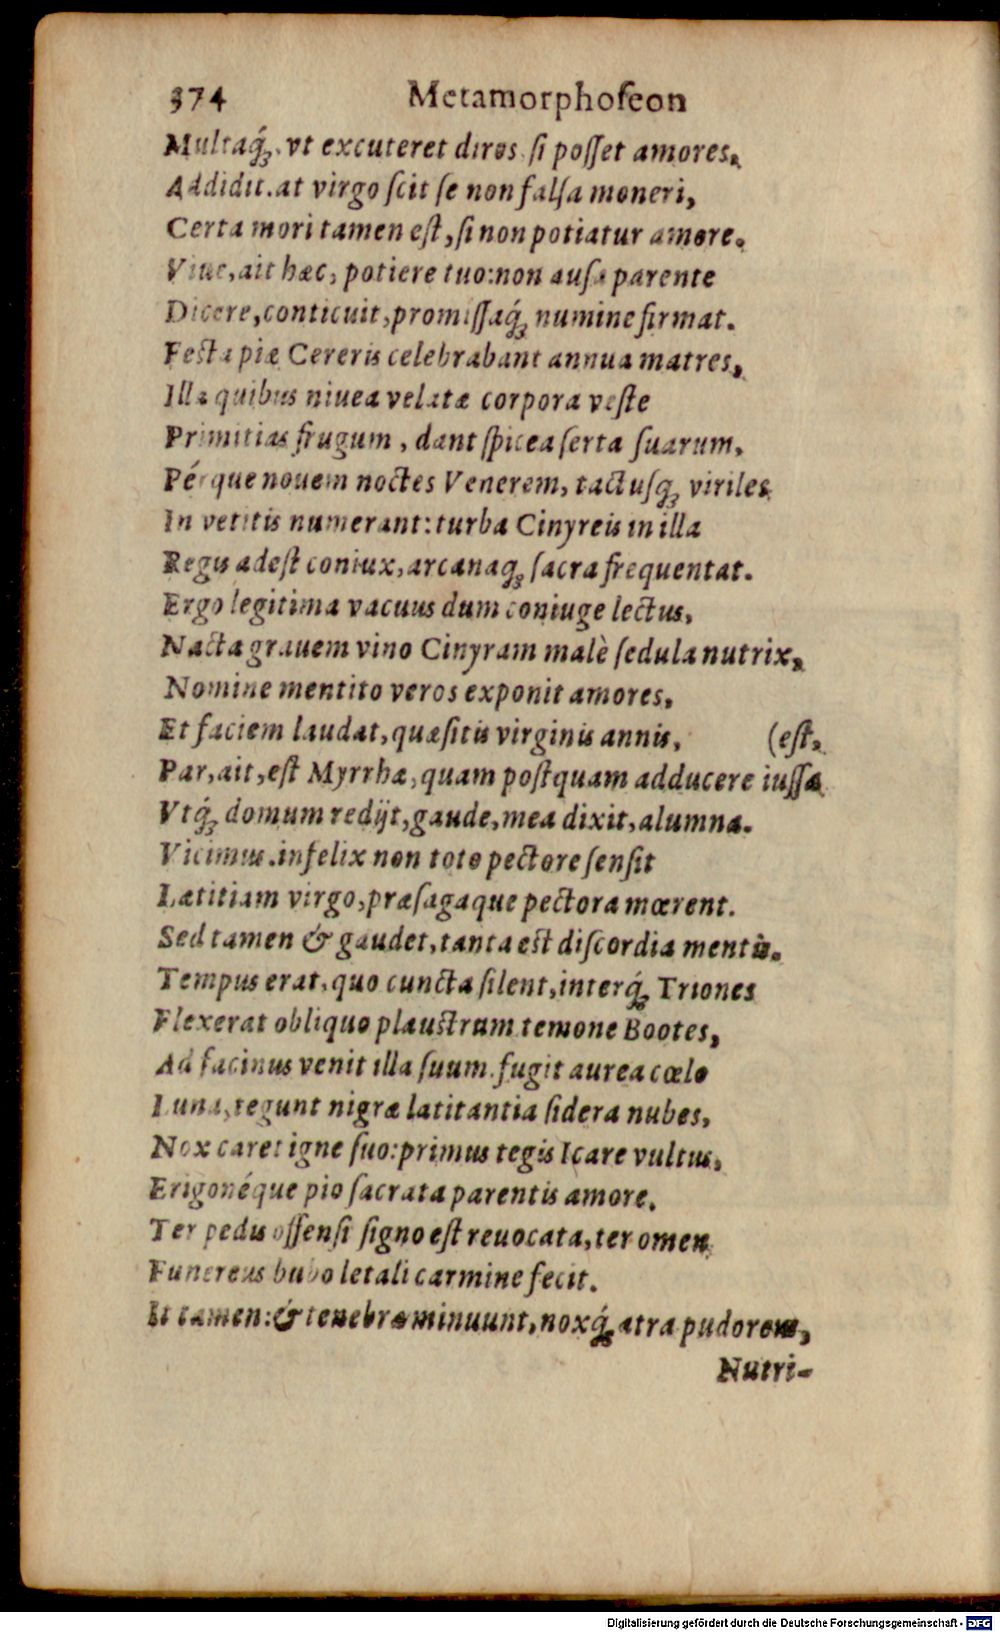 374 Metamorphoſeon
Multaq́ꝫ, vt excuteret diros ſi poſſet amores,
Addidit. at virgo ſcit ſe non falſa moneri,
Certa mori tamen eſt, ſi non potiatur amore.
Viue, ait hæc, potiere tuo: non auſa parente
Dicere, conticuit, promiſſaq́ꝫ numine firmat.
Feſta piæ Cereris celebrabant annua matres,
Illa quibus niuea velatæ corpora veſte
Primitias frugum, dant ſpicea ſerta ſuarum,
Pérque nouem noctes Venerem, tactuſqꝫ viriles
In vetitis numerant: turba Cinyreis in illa
Regis adeſt coniux, arcanaqꝫ ſacra frequentat.
Ergo legitima vacuus dum coniuge lectus,
Nacta grauem vino Cinyram malè ſedula nutrix,
Nomine mentito veros exponit amores,
Et faciem laudat, quæſitis virginis annis, (eſt,
Par, ait, eſt Myrrhæ, quam poſtquam adducere iuſſa
Vtq́ꝫ domum redijt, gaude, mea dixit, alumna.
Vicimus. infelix non toto pectore ſenſit
Lætitiam virgo, præſagaque pectora mœrent.
Sed tamen & gaudet, tanta eſt diſcordia mentis.
Tempus erat, quo cuncta ſilent, interq́ꝫ Triones
Flexerat obliquo plauſtrum temone Bootes,
Ad facinus venit illa ſuum. fugit aurea cœlo
Luna, tegunt nigræ latitantia ſidera nubes,
Nox caret igne ſuo: primus tegis Icare vultus,
Erigonéque pio ſacrata parentis amore.
Ter pedis offenſi ſigno eſt reuocata, ter omen
Funereus bubo letali carmine fecit.
It tamen: & tenebræ minuunt, noxq́ꝫ atra pudorem,
Nutri-
Digitalisierung gefördert durch die Deutsche Forschungsgemeinschaft - DFG